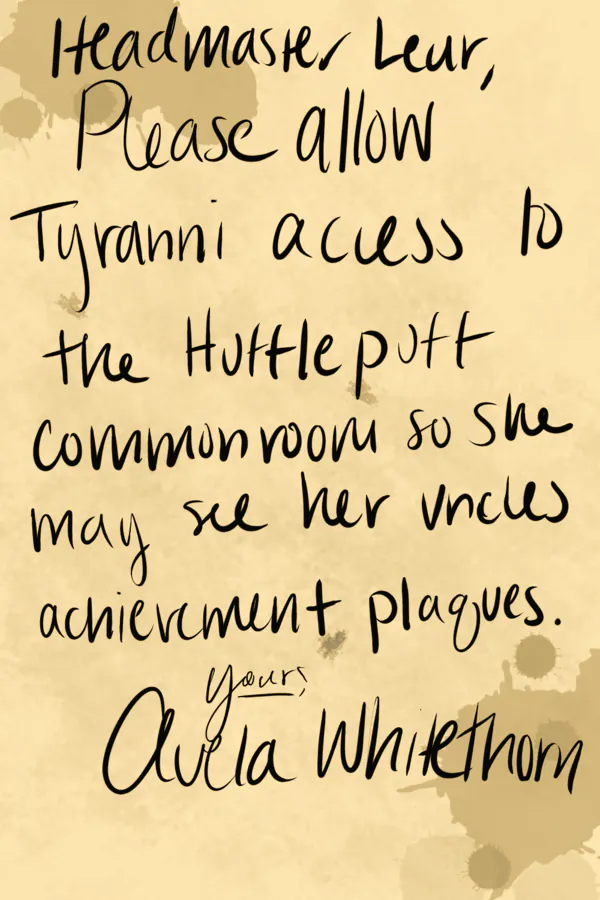 Headmaster Leur,
Please allow
Tyranni access to
the Hufflepuff
common room so she
may see her uncles
achievement plaques.
Yours,
Avela Whitethorn